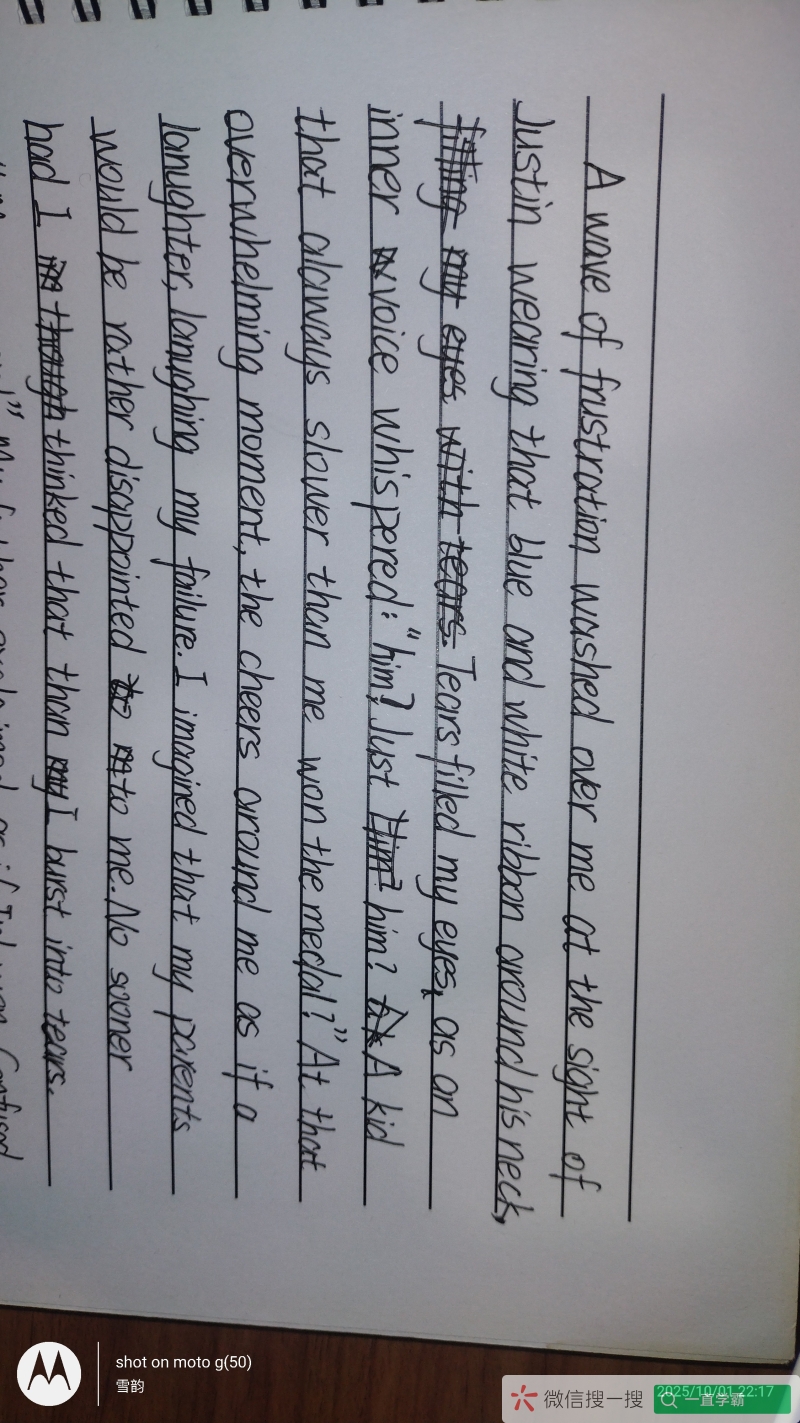 A wave of frustration washed over me at the sight of
Justin wearing that blue and white ribbon around his neck,
fitting my eyes with tears. Tears filled my eyes, as an
inner voice whispered: "him? Just Him? him? A kid
that always slower than me won the medal?" At that
overwhelming moment, the cheers around me as if a
lanughter, lanughing my failure. I imagined that my parents
would be rather disappointed to to me. No sooner
had I though thinked that than my I burst into tears.
My father exclaimed as if I'd won Confused
shot on moto g(50)
雪韵
微信搜一搜
2025/10/01 22:17
一直学霸